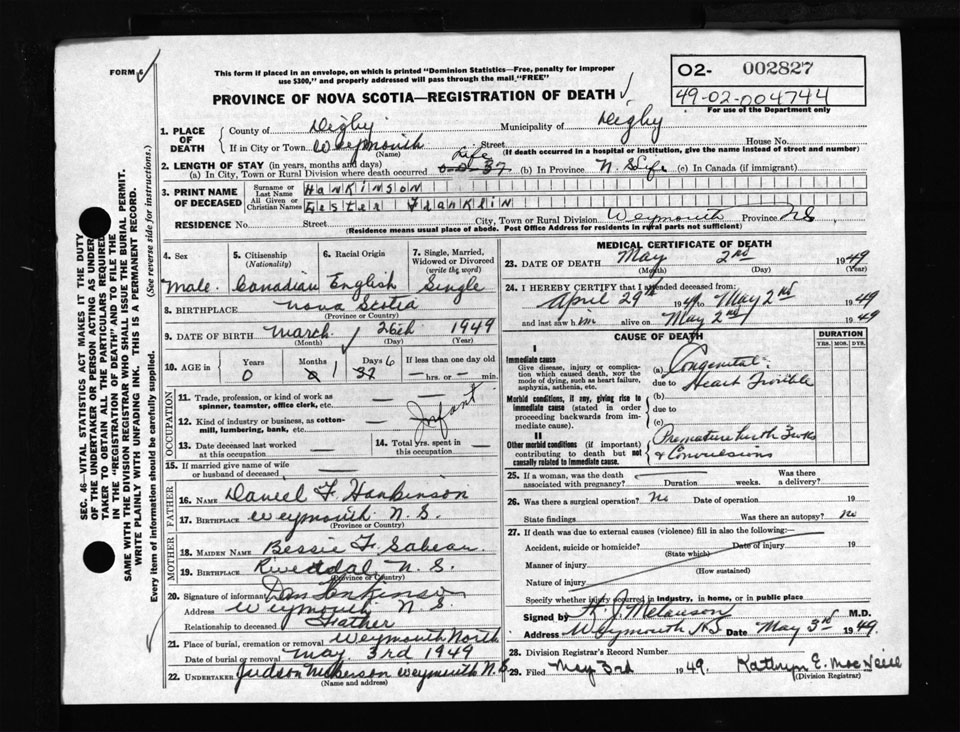 FORM 6
This form if placed in an envelope, on which is printed "Dominion Statistics—Free, penalty for improper
use $300," and properly addressed will pass through the mail "FREE"
PROVINCE OF NOVA SCOTIA—REGISTRATION OF DEATH
02- 002827
49-02-004744
For use of the Department only
1. PLACE OF DEATH
County of Digby Municipality of Digby
If in City or Town Weymouth Street House No.
(Name) (If death occurred in a hospital or institution, give the name instead of street and number)
2. LENGTH OF STAY (in years, months and days)
(a) In City, Town or Rural Division where death occurred Life 0-0-37 (b) In Province N.S. Life (c) In Canada (if immigrant)
3. PRINT NAME OF DECEASED
Surname or Last Name Hankinson
All Given or Christian Names Lester Franklin
RESIDENCE No. Street City, Town or Rural Division Weymouth Province N.S
(Residence means usual place of abode. Post Office Address for residents in rural parts not sufficient)
4. Sex 5. Citizenship (Nationality) 6. Racial Origin 7. Single, Married, Widowed or Divorced (write the word)
Male Canadian English Single
8. BIRTHPLACE Nova Scotia
(Province or Country)
9. DATE OF BIRTH March 26th 1949
(Month) (Day) (Year)
10. AGE in Years Months Days If less than one day old
0 1 6 37 — hrs. or — min.
OCCUPATION
11. Trade, profession, or kind of work as spinner, teamster, office clerk, etc. —
12. Kind of industry or business, as cotton-mill, lumbering, bank, etc. — Infant
13. Date deceased last worked at this occupation —
14. Total yrs. spent in this occupation —
15. If married give name of wife or husband of deceased —
FATHER
16. NAME Daniel F. Hankinson
17. BIRTHPLACE Weymouth N.S.
(Province or Country)
MOTHER
18. MAIDEN NAME Bessie F. Sabean
19. BIRTHPLACE N.S.
(Province or Country)
20. Signature of informant Dan Hankinson
Address Weymouth N.S.
Relationship to deceased Father
21. Place of burial, cremation or removal Weymouth North
Date of burial or removal May 3rd 1949
22. UNDERTAKER Judson Weymouth N.S
(Name and address)
MEDICAL CERTIFICATE OF DEATH
23. DATE OF DEATH May 2nd 1949
(Month) (Day) (Year)
24. I HEREBY CERTIFY that I attended deceased from:
April 29th 1949 to May 2nd 1949
and last saw him alive on May 2nd 1949
CAUSE OF DEATH DURATION
YRS. MOS. DYS.
I
Immediate cause
Give disease, injury or complication which caused death, NOT the mode of dying, such as heart failure, asphyxia, asthenia, etc.
(a) Congenital
due to Heart Trouble
Morbid conditions, if any, giving rise to immediate cause (stated in order proceeding backwards from immediate cause).
(b)
due to
(c)
II
Other morbid conditions (if important) contributing to death but not causally related to immediate cause.
Premature birth
& Convulsions
25. If a woman, was the death associated with pregnancy? Duration weeks. Was there a delivery?
26. Was there a surgical operation? No Date of operation 19
State findings Was there an autopsy? no
27. If death was due to external causes (violence) fill in also the following:—
Accident, suicide or homicide? Date of injury 19
(State which)
Manner of injury
(How sustained)
Nature of injury
Specify whether injury occurred in industry, in home, or in public place
Signed by J. Melanson M.D.
Address Weymouth NS Date May 3rd 1949.
28. Division Registrar's Record Number
29. Filed May 3rd 1949. Kathryn E. MacNeill
(Division Registrar)
SEC. 46—VITAL STATISTICS ACT MAKES IT THE DUTY
OF THE UNDERTAKER OR PERSON ACTING AS UNDERTAKER
TO OBTAIN ALL THE PARTICULARS REQUIRED
IN THE "REGISTRATION OF DEATH" AND TO FILE THE
SAME WITH THE DIVISION REGISTRAR WHO SHALL ISSUE THE BURIAL PERMIT.
WRITE PLAINLY WITH UNFADING INK. THIS IS A PERMANENT RECORD.
Every item of information should be carefully supplied. (See reverse side for instructions.)